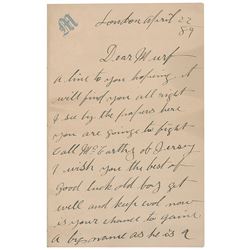 M
London April 22
89
Dear Murf
a line to you hoping it
will find you all right
I see by the papers here
you are going to fight
Call McCarthy of Jersey
I wish you the best of
good luck old boy get
well and keep cool now
is your chance to gain
a big name as he is a